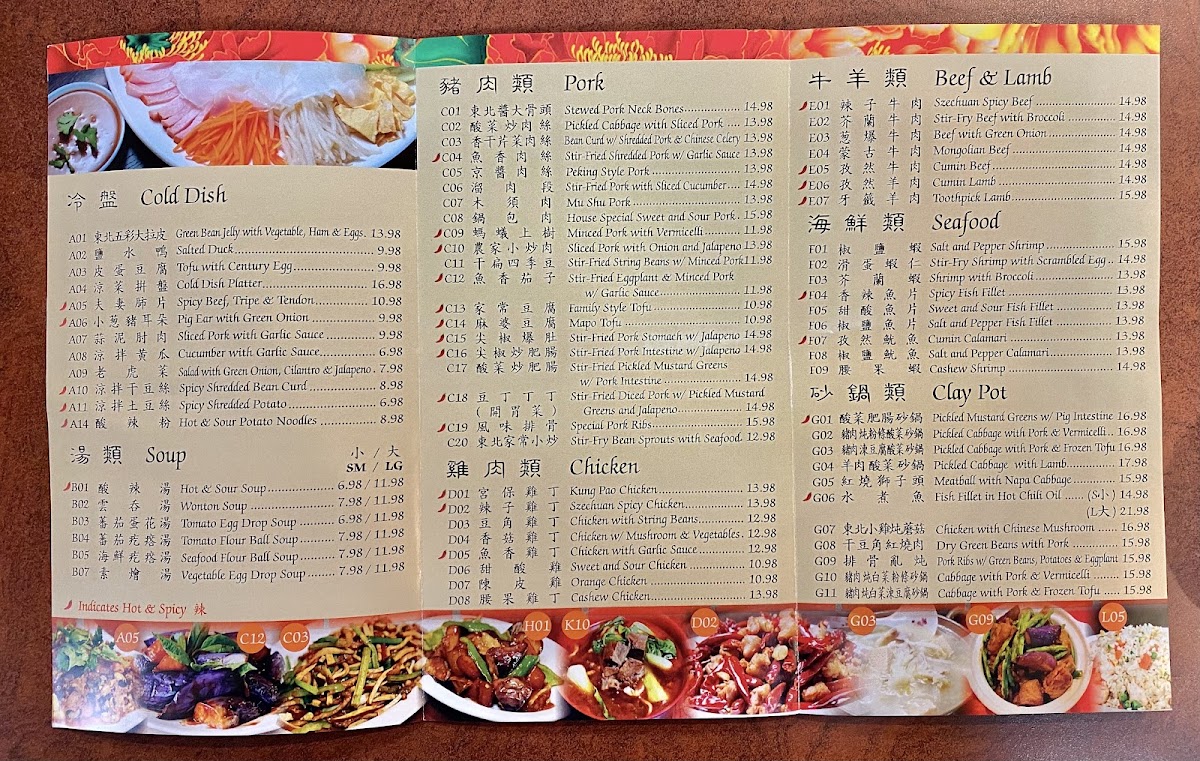 冷盤 Cold Dish
A01 東北五彩大拉皮 Green Bean Jelly with Vegetable, Ham & Eggs. 13.98
A02 鹽水鴨 Salted Duck 9.98
A03 皮蛋豆腐 Tofu with Century Egg 9.98
A04 涼菜拼盤 Cold Dish Platter 16.98
A05 夫妻肺片 Spicy Beef, Tripe & Tendon 10.98
A06 小葱豬耳朵 Pig Ear with Green Onion 9.98
A07 蒜泥肘肉 Sliced Pork with Garlic Sauce 9.98
A08 涼拌黃瓜 Cucumber with Garlic Sauce 6.98
A09 老虎菜 Salad with Green Onion, Cilantro & Jalapeno. 7.98
A10 涼拌干豆絲 Spicy Shredded Bean Curd 8.98
A11 涼拌土豆絲 Spicy Shredded Potato 6.98
A14 酸辣粉 Hot & Sour Potato Noodles 8.98
湯類 Soup 小 / 大
SM / LG
B01 酸辣湯 Hot & Sour Soup 6.98 / 11.98
B02 雲吞湯 Wonton Soup 7.98 / 11.98
B03 蕃茄蛋花湯 Tomato Egg Drop Soup 6.98 / 11.98
B04 蕃茄疙瘩湯 Tomato Flour Ball Soup 7.98 / 11.98
B05 海鮮疙瘩湯 Seafood Flour Ball Soup 7.98 / 11.98
B07 素燴湯 Vegetable Egg Drop Soup 7.98 / 11.98
Indicates Hot & Spicy 辣
豬肉類 Pork
C01 東北醬大骨頭 Stewed Pork Neck Bones 14.98
C02 酸菜炒肉絲 Pickled Cabbage with Sliced Pork 13.98
C03 香干芹菜肉絲 Bean Curd w/ Shredded Pork & Chinese Celery 13.98
C04 魚香肉絲 Stir-Fried Shredded Pork w/ Garlic Sauce 13.98
C05 京醬肉絲 Peking Style Pork 13.98
C06 溜肉段 Stir-Fried Pork with Sliced Cucumber 14.98
C07 木須肉 Mu Shu Pork 13.98
C08 鍋包肉 House Special Sweet and Sour Pork 15.98
C09 螞蟻上樹 Minced Pork with Vermicelli 11.98
C10 農家小炒肉 Sliced Pork with Onion and Jalapeno 13.98
C11 干扁四季豆 Stir-Fried String Beans w/ Minced Pork 11.98
C12 魚香茄子 Stir-Fried Eggplant & Minced Pork
w/ Garlic Sauce 11.98
C13 家常豆腐 Family Style Tofu 10.98
C14 麻婆豆腐 Mapo Tofu 10.98
C15 尖椒爆肚 Stir-Fried Pork Stomach w/ Jalapeno 14.98
C16 尖椒炒肥腸 Stir-Fried Pork Intestine w/ Jalapeno 14.98
C17 酸菜炒肥腸 Stir-Fried Pickled Mustard Greens
w/ Pork Intestine 14.98
C18 豆丁丁丁 Stir Fried Diced Pork w/ Pickled Mustard
(開胃菜) Greens and Jalapeno 14.98
C19 風味排骨 Special Pork Ribs 15.98
C20 東北家常小炒 Stir-Fry Bean Sprouts with Seafood. 12.98
雞肉類 Chicken
D01 宮保雞丁 Kung Pao Chicken 13.98
D02 辣子雞丁 Szechuan Spicy Chicken 13.98
D03 豆角雞丁 Chicken with String Beans 12.98
D04 香菇雞丁 Chicken w/ Mushroom & Vegetables. 12.98
D05 魚香雞丁 Chicken with Garlic Sauce 12.98
D06 甜酸雞 Sweet and Sour Chicken 10.98
D07 陳皮雞 Orange Chicken 10.98
D08 腰果雞丁 Cashew Chicken 13.98
牛羊類 Beef & Lamb
E01 辣子牛肉 Szechuan Spicy Beef 14.98
E02 芥蘭牛肉 Stir-Fry Beef with Broccoli 14.98
E03 葱爆牛肉 Beef with Green Onion 14.98
E04 蒙古牛肉 Mongolian Beef 14.98
E05 孜然牛肉 Cumin Beef 14.98
E06 孜然羊肉 Cumin Lamb 14.98
E07 牙籤羊肉 Toothpick Lamb 15.98
海鮮類 Seafood
F01 椒鹽蝦 Salt and Pepper Shrimp 15.98
F02 滑蛋蝦仁 Stir-Fry Shrimp with Scrambled Egg 14.98
F03 芥蘭蝦 Shrimp with Broccoli 13.98
F04 香辣魚片 Spicy Fish Fillet 13.98
F05 甜酸魚片 Sweet and Sour Fish Fillet 13.98
F06 椒鹽魚片 Salt and Pepper Fish Fillet 13.98
F07 孜然魷魚 Cumin Calamari 13.98
F08 椒鹽魷魚 Salt and Pepper Calamari 13.98
F09 腰果蝦 Cashew Shrimp 14.98
砂鍋類 Clay Pot
G01 酸菜肥腸砂鍋 Pickled Mustard Greens w/ Pig Intestine 16.98
G02 豬肉炖粉條酸菜砂鍋 Pickled Cabbage with Pork & Vermicelli 16.98
G03 豬肉凍豆腐酸菜砂鍋 Pickled Cabbage with Pork & Frozen Tofu 16.98
G04 羊肉酸菜砂鍋 Pickled Cabbage with Lamb 17.98
G05 紅燒獅子頭 Meatball with Napa Cabbage 15.98
G06 水煮魚 Fish Fillet in Hot Chili Oil (S小) 14.98
(L大) 21.98
G07 東北小雞炖蘑菇 Chicken with Chinese Mushroom 16.98
G08 干豆角紅燒肉 Dry Green Beans with Pork 15.98
G09 排骨亂炖 Pork Ribs w/ Green Beans, Potatoes & Eggplant 15.98
G10 豬肉炖白菜粉條砂鍋 Cabbage with Pork & Vermicelli 15.98
G11 豬肉炖白菜凍豆腐砂鍋 Cabbage with Pork & Frozen Tofu 15.98
A05 C12 C03 H01 K10 D02 G03 G09 L05